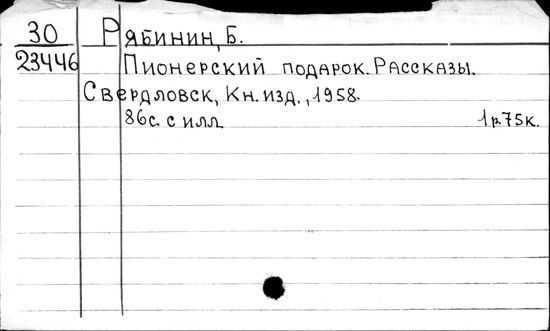 30 Рябинин, Б.
23446 Пионерский подарок. Рассказы.
Свердловск, Кн. изд., 1958.
86с. с илл. 1р.75к.